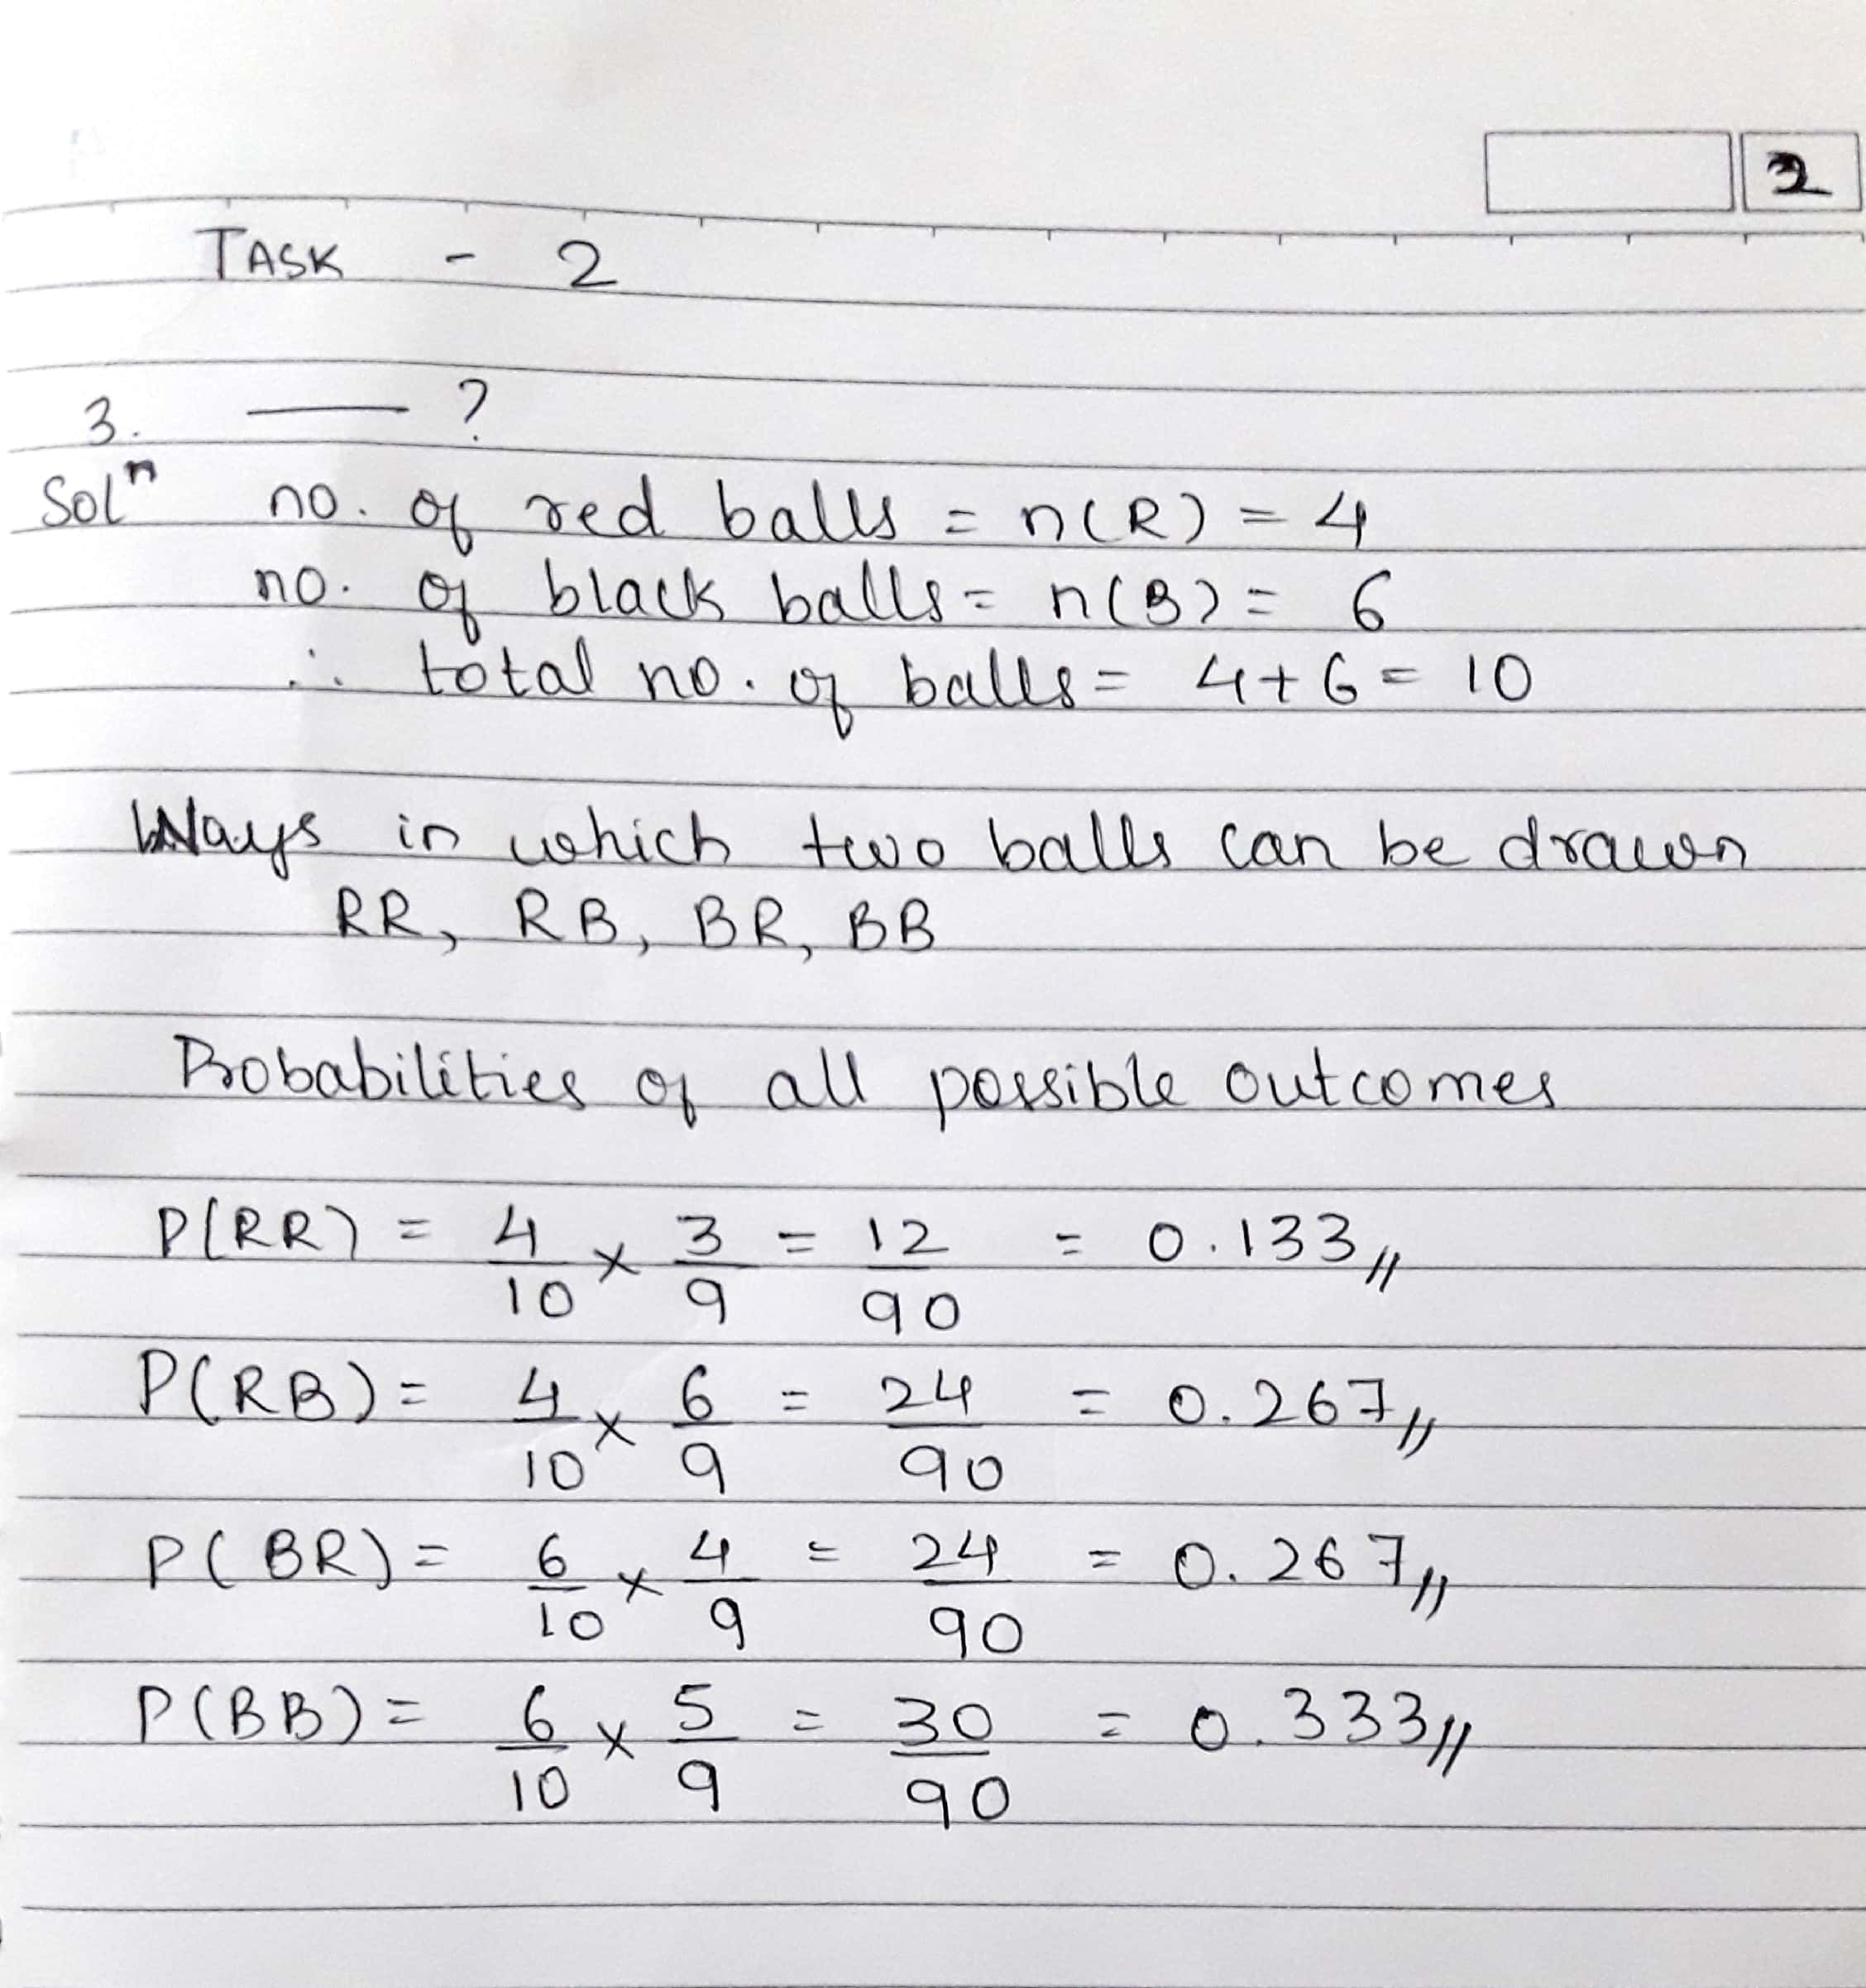 2
TASK - 2
3. —— ?
Solⁿ no. of red balls = n(R) = 4
no. of black balls = n(B) = 6
∴ total no. of balls = 4+6 = 10
Ways in which two balls can be drawn
RR, RB, BR, BB
Probabilities of all possible outcomes
P(RR) = 4/10 × 3/9 = 12/90 = 0.133//
P(RB) = 4/10 × 6/9 = 24/90 = 0.267//
P(BR) = 6/10 × 4/9 = 24/90 = 0.267//
P(BB) = 6/10 × 5/9 = 30/90 = 0.333//